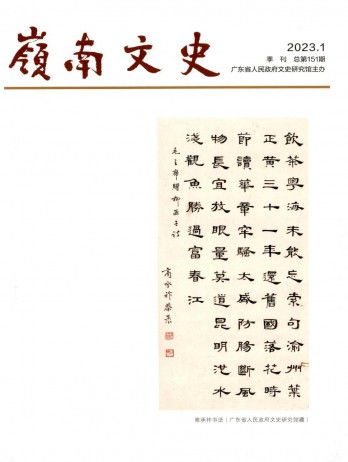 嶺南文史
2023.1
季刊 总第151期
广东省人民政府文史研究馆主办
飲茶粵海未能忘索句渝州葉
正黃三十一年還舊國落花時
節讀華章牢騷太盛防腸斷風
物長宜放眼量莫道昆明池水
淺觀魚勝過富春江
毛主席贈柳亞子詩
商承祚
商承祚书法（广东省人民政府文史研究馆藏）